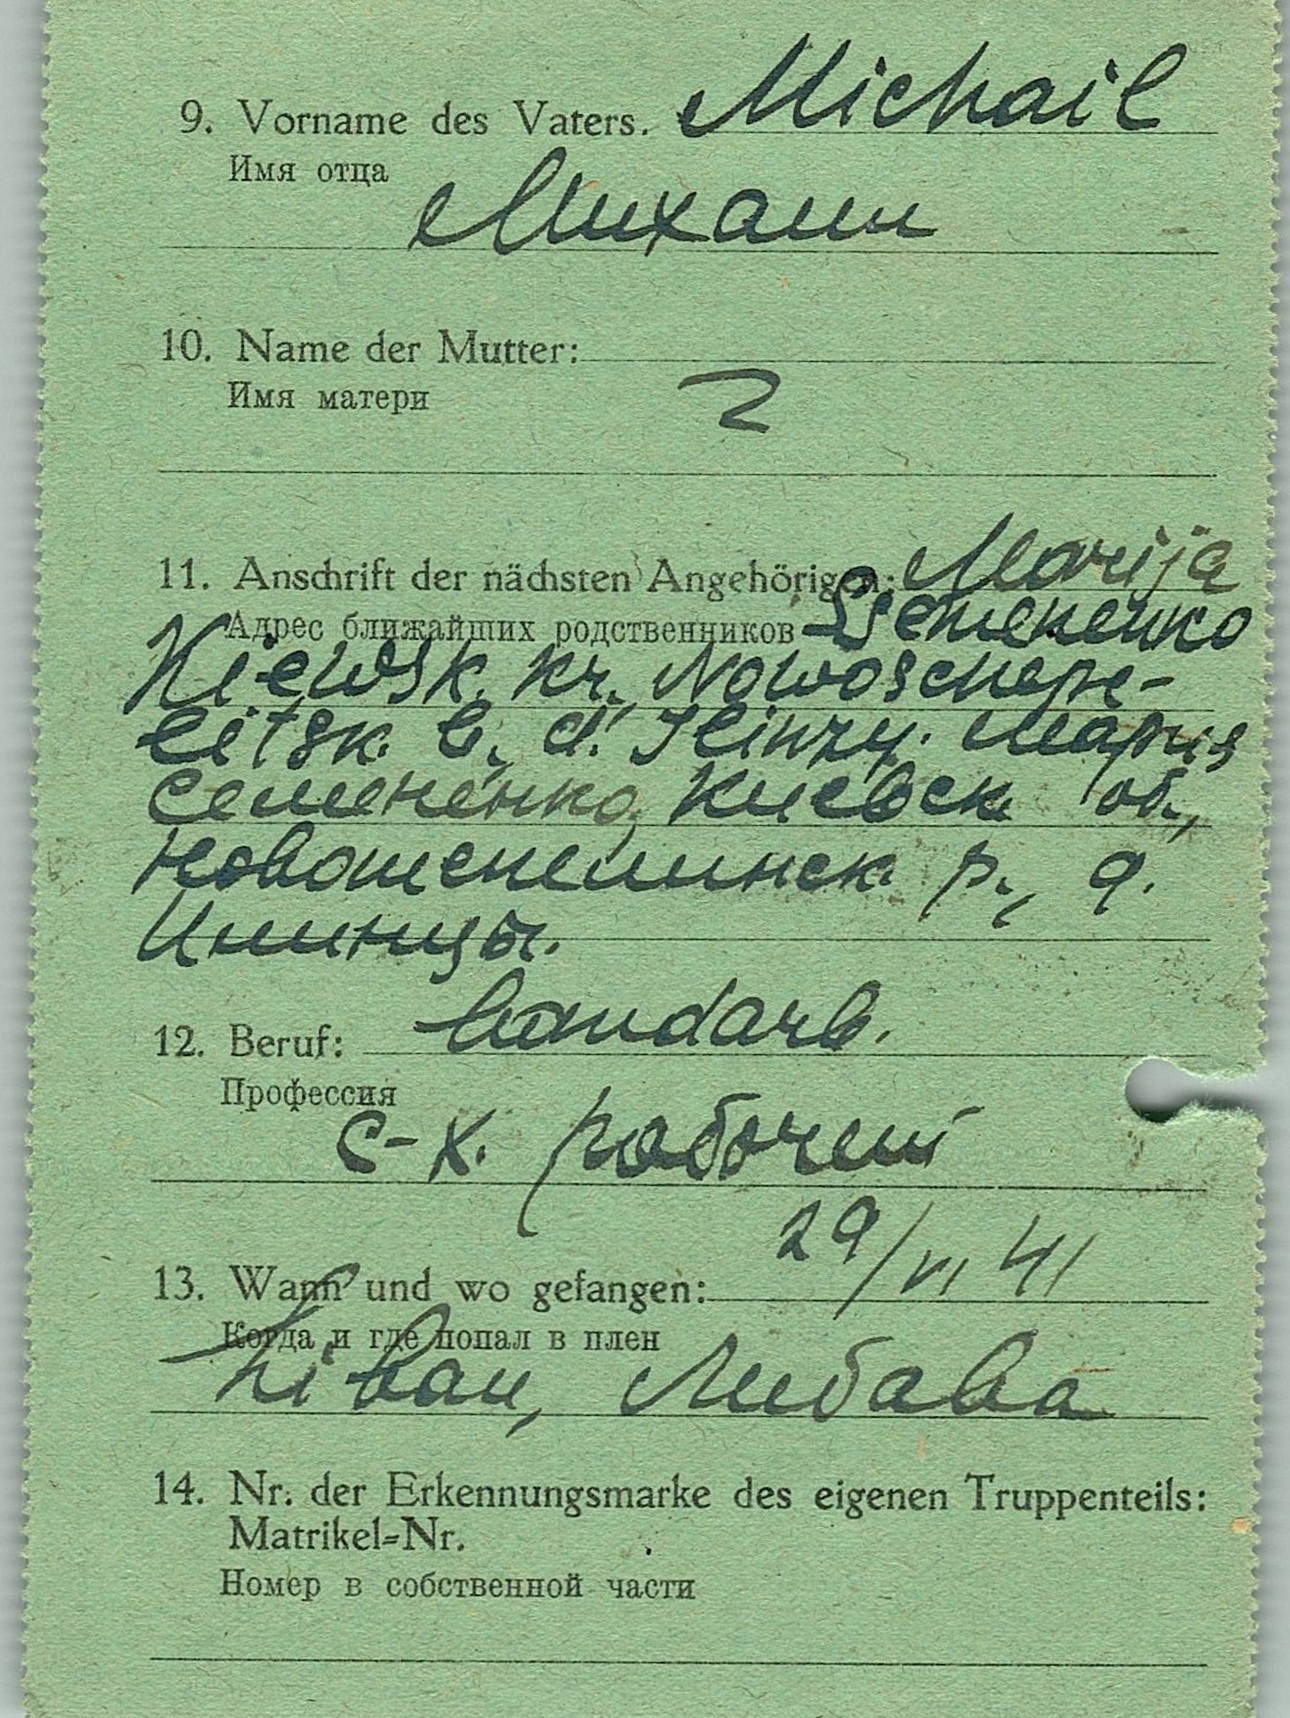 9. Vorname des Vaters. Michail
Имя отца
Михаил
10. Name der Mutter:
Имя матери
11. Anschrift der nächsten Angehörigen: Marija
Адрес ближайших родственников Semenenko
Kiewsk. kr. Nowoschepe-
litsk b. d. Ilinzy. Мария
Семененко, Киевск об,
Новошепелинск р., д.
Илинцы.
12. Beruf: Landarb.
Профессия
с-х. рабочий
29/VI 41
13. Wann und wo gefangen:
Когда и где попал в плен
Libau, Либава
14. Nr. der Erkennungsmarke des eigenen Truppenteils:
Matrikel=Nr.
Номер в собственной части